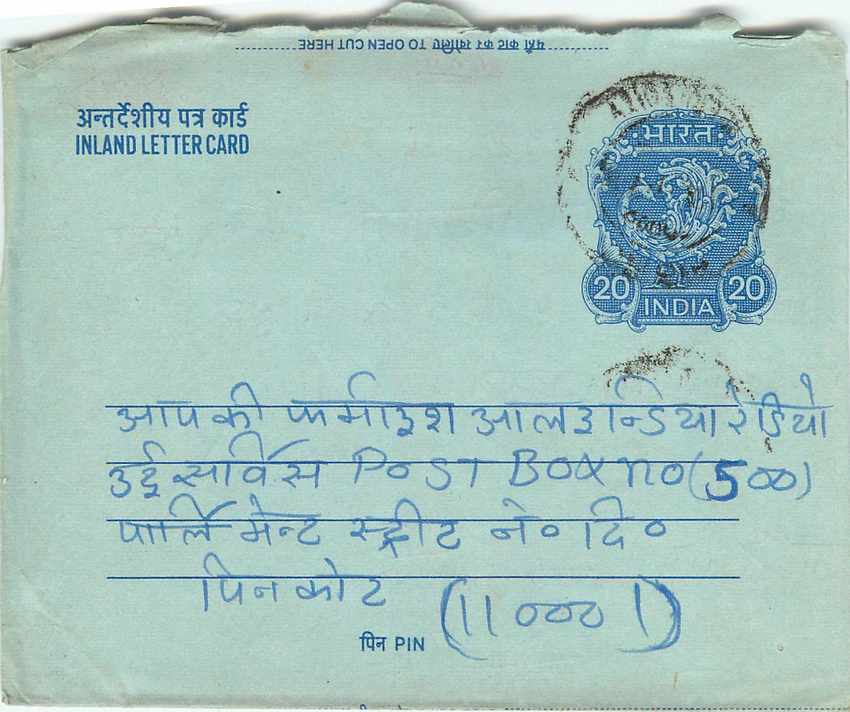 यहाँ काट कर खोलिए TO OPEN CUT HERE
अन्तर्देशीय पत्र कार्ड
INLAND LETTER CARD
भारत
20 INDIA 20
आपकी फर्माइश आल इन्डिया रेडियो
उर्दू सार्विस POST BOX no (500)
पार्लिमेन्ट स्ट्रीट ने० दि०
पिन कोट (110001)
पिन PIN